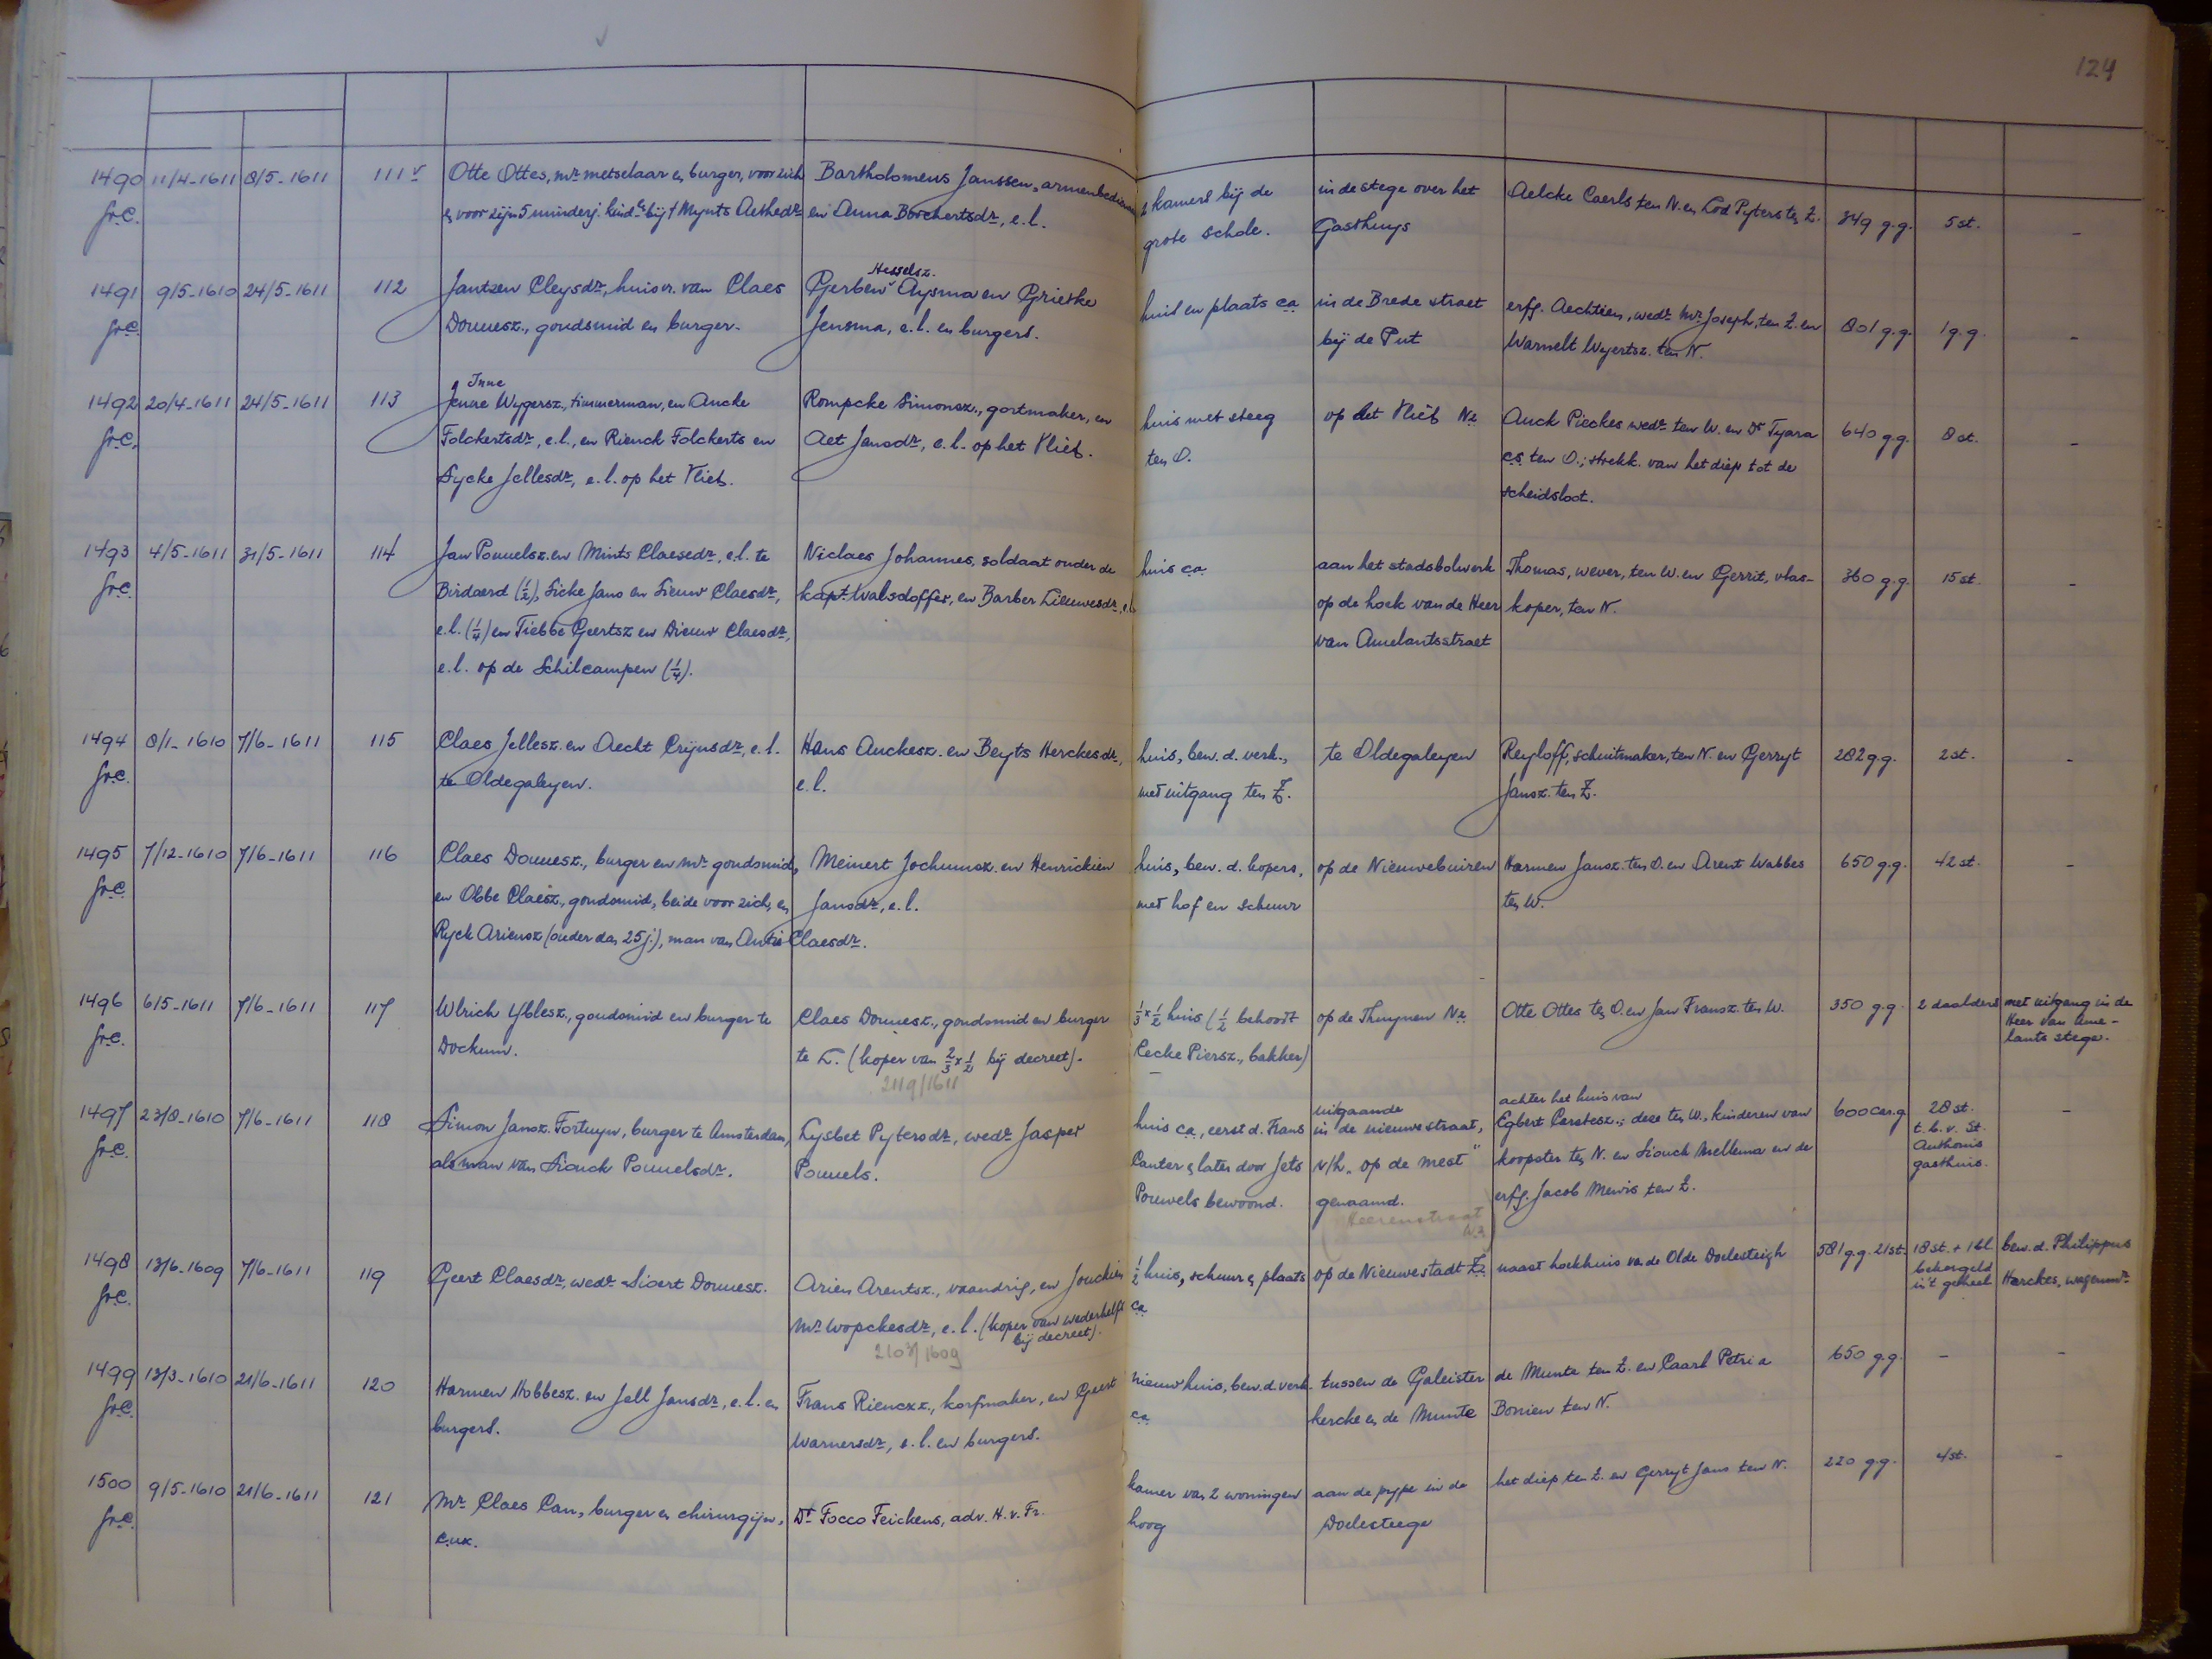 124
1490 11/4-1611 8/5-1611 111v Otte Ottes, mr metselaar en burger, voor zich Bartholomeus Janssen, armenbediende 2 kamers bij de in de stege over het Aelcke Caerls ten N. en Lod Pyters ten Z. 349 g.g. 5 st. -
fr.C. en voor zijn 5 minderj. kindn bij † Mynts Aethedr en Anna Borchertsdr, e.l. grote schole. Gasthuys
1491 9/5-1610 24/5-1611 112 Jantzen Cleysdr, huisvr. van Claes Gerben Hesselsz. Aysma en Grietke huis en plaats ca in de Brede straet erfg. Aechtien, wedr Mr Joseph, ten Z. en 801 g.g. 1 g.g. -
fr.C. Douuesz., goudsmid en burger. Jensma, e.l. en burgers. bij de Put Warnelt Wyertsz. ten N.
Inne
1492 20/4-1611 24/5-1611 113 Jenne Wygersz., timmerman, en Aucke Rompcke Simonsz., gortmaker, en huis met steeg op het Vliet Nz Auck Pieckes wedr ten W. en Dr Tjara 640 g.g. 8 st. -
fr.C. Folckertsdr, e.l., en Rienck Folckerts en Aet Jansdr, e.l. op het Vliet. ten O. cs ten O.; strekk. van het diep tot de
Sycke Jellesdr, e.l. op het Vliet. scheidsloot.
1493 4/5-1611 31/5-1611 114 Jan Pouuelsz. en Mints Claesedr, e.l. te Niclaes Johannes, soldaat onder de huis ca aan het stadsbolwerk Thomas, wever, ten W. en Gerrit, vlas- 360 g.g. 15 st. -
fr.C. Birdaerd (1/2), Sicke Jans en Sieuw Claesdr, kapt. Walsdoffer, en Barber Lieuwesdr, e.l. op de hoek van de Heer koper, ten N.
e.l. (1/4) en Tiebbe Geertsz en Dieuw Claesdr, van Amelantsstraet
e.l. op de Schilcampen (1/4).
1494 8/1-1610 7/6-1611 115 Claes Jellesz. en Aecht Crijnsdr, e.l. Hans Auckesz. en Beyts Herckesdr, huis, bew. d. verk., te Oldegaleyen Reyloff, schuitmaker, ten N. en Gerryt 282 g.g. 2 st. -
fr.C. te Oldegaleyen. e.l. met uitgang ten Z. Jansz. ten Z.
1495 7/12-1610 7/6-1611 116 Claes Douuesz., burger en mr goudsmid, Meinert Jochumsz. en Henrickien huis, bew. d. kopers, op de Nieuwebuiren Harmen Jansz. ten O. en Arent Wabbes 650 g.g. 42 st. -
fr.C. en Obbe Claesz., goudsmid, beide voor zich, en Jansdr, e.l. met hof en schuur ten W.
Ryck Ariensz (ouder dan 25 j.), man van Antie Claesdr.
1496 6/5-1611 7/6-1611 117 Wlrich Yblesz., goudsmid en burger te Claes Douuesz., goudsmid en burger 1/3 x 1/2 huis (1/2 behoort op de Thuynen Nz Otte Ottes ten O. en Jan Fransz. ten W. 350 g.g. 2 daalders met uitgang in de
fr.C. Dockum. te L. (koper van 2/3 x 1/2 bij decreet). Cecke Piersz., bakker) Heer van Ame-
2119/1611 lants stege.
1497 23/8-1610 7/6-1611 118 Simon Jansz. Fortuyn, burger te Amsterdam, Lysbet Pytersdr, wedr Jasper huis ca, eerst d. Frans uitgaande in de nieuwe straat, achter het huis van Egbert Carstesz.; deze ten W., kinderen van 600 car.g 28 st. -
fr.C. als man van Siouck Pouuelsdr. Pouuels. Canter en later door Jets v/h "op de mest" koopster ten N. en Siouck Mellema en de t.b.v. St. Anthonis
Pouwels bewoond. genaamd. erfg. Jacob Mewis ten Z. gasthuis.
Heerenstraat Wz
1498 13/6-1609 7/6-1611 119 Geert Claesdr, wedr Sioert Douuesz. Arien Arentsz., vaandrig, en Jouckien 1/2 huis, schuur en plaats op de Nieuwestadt Zz naast hoekhuis va de Olde Doelesteigh 581 g.g. 21 st. 18 st. + 1 bl. bew. d. Philippus
fr.C. Mr Wopckesdr, e.l. (koper van wederhelft bij decreet). ca bekergeld in't geheel Herckes, wagenmr
2103/1609
1499 13/3-1610 21/6-1611 120 Harmen Hobbesz. en Jell Jansdr, e.l. en Frans Rienckx., korfmaker, en Geert nieuw huis, bew. d. verk. tussen de Galeister de Munte ten Z. en Caarl Petri a 650 g.g. - -
fr.C. burgers. Warnersdr, e.l. en burgers. ca kercke en de Munte Bonien ten N.
1500 9/5-1610 21/6-1611 121 Mr Claes Can, burger en chirurgijn, Dr Focco Feickens, adv. H.v.Fr. kamer van 2 woningen aan de pijpe in de het diep ten Z. en Gerryt Jans ten N. 220 g.g. 4 st. -
fr.C. c.ux. hoog Doelesteege